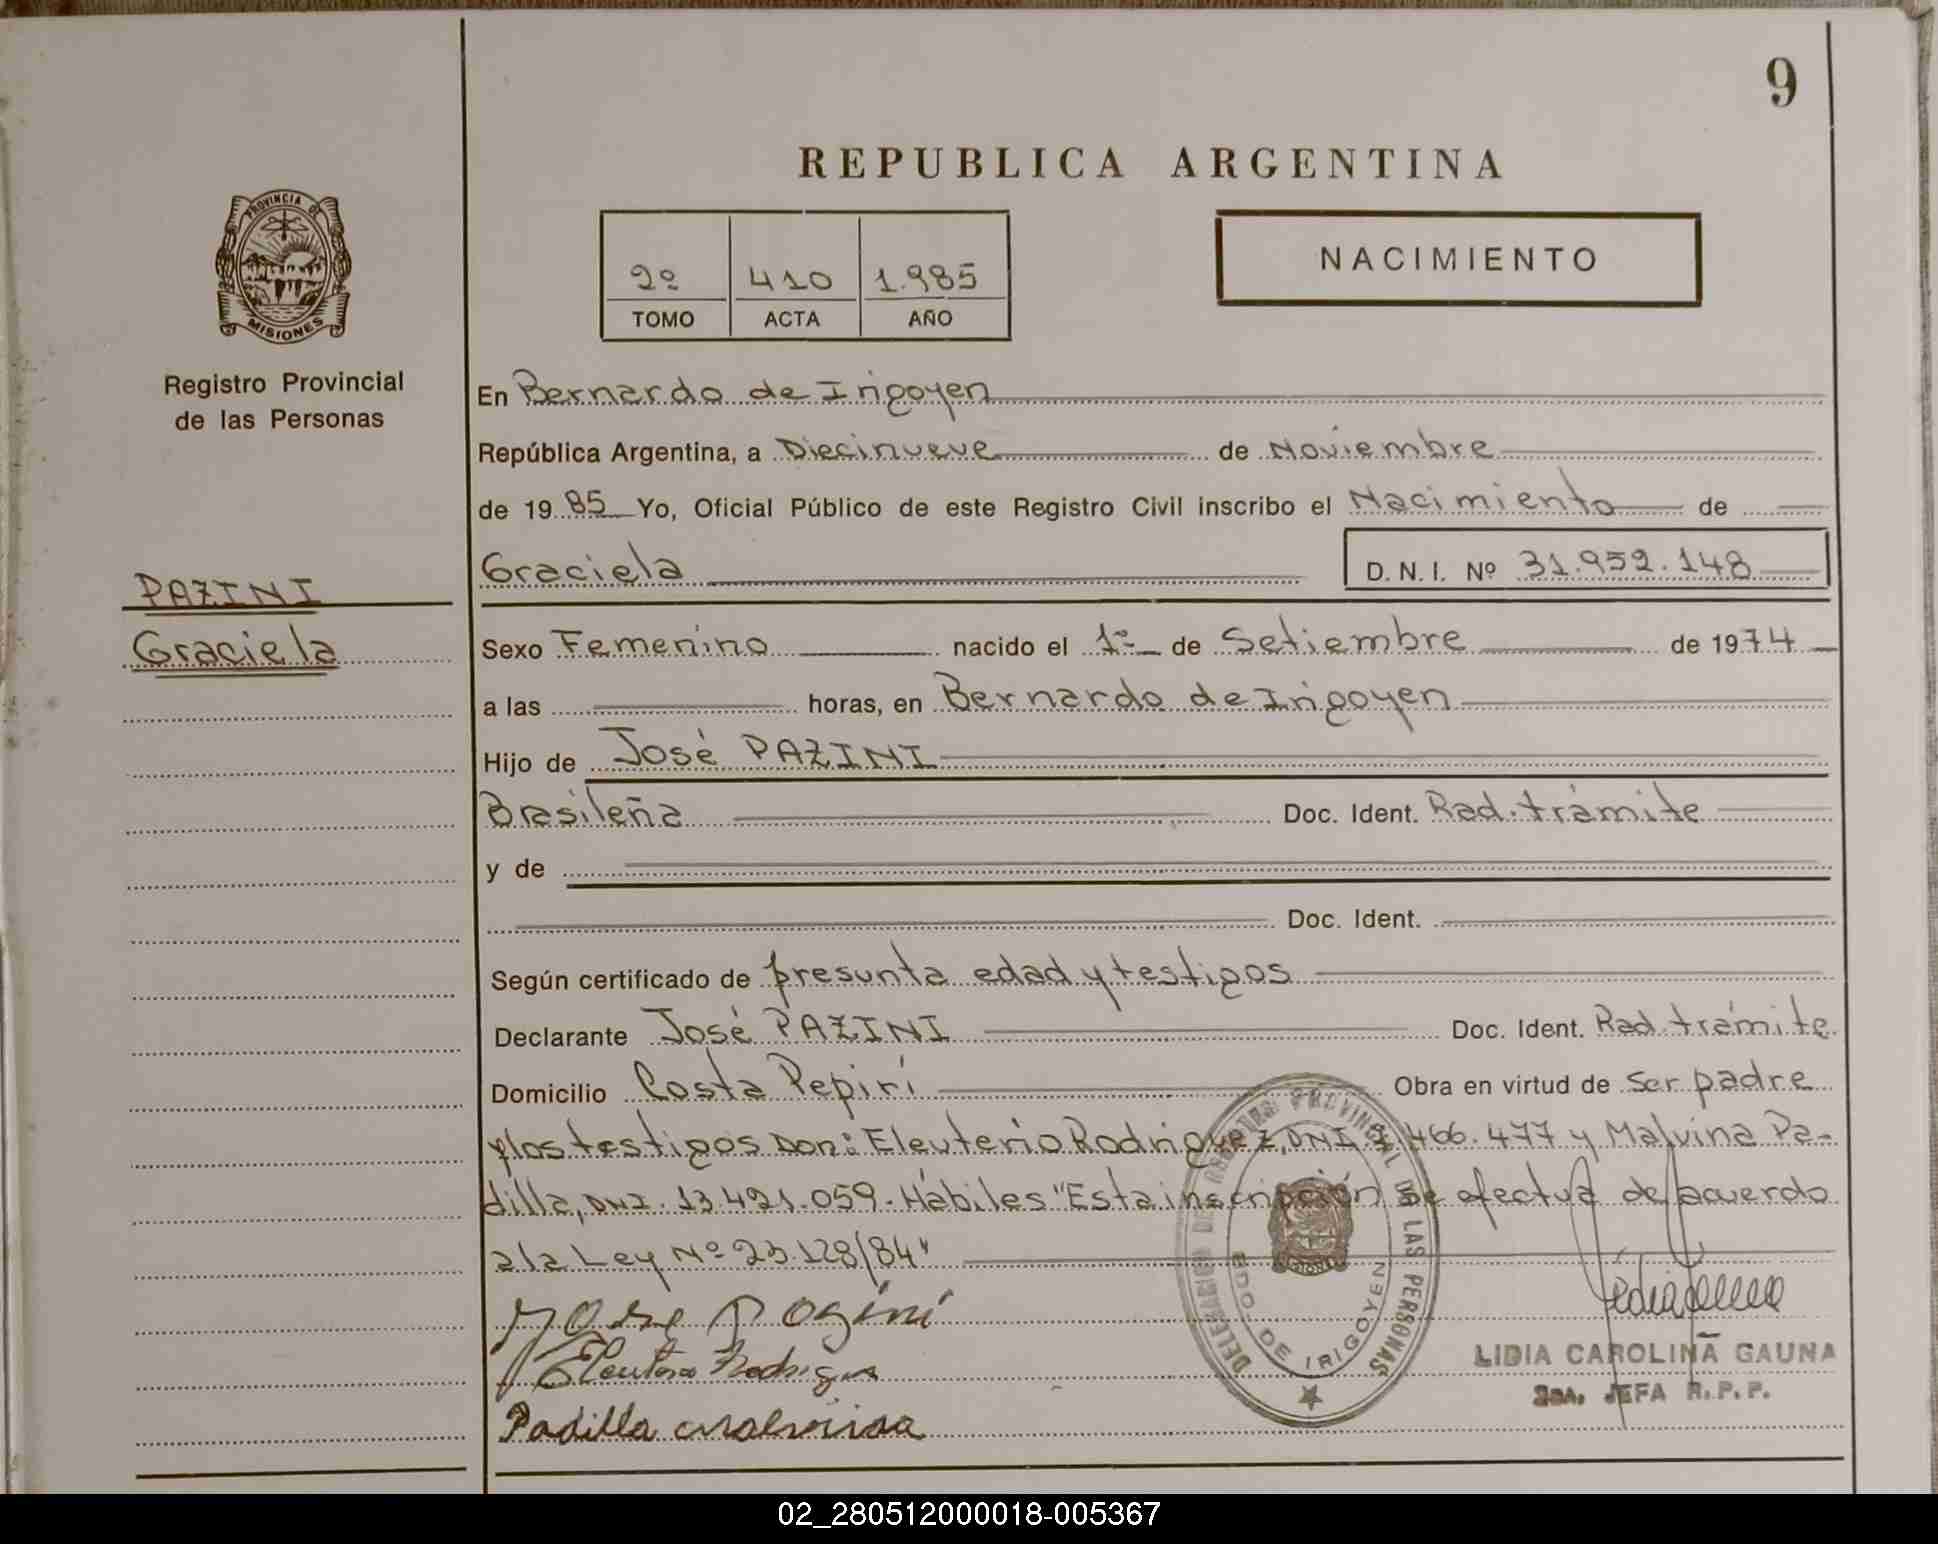 9
REPUBLICA ARGENTINA
PROVINCIA DE
MISIONES
Registro Provincial
de las Personas
2º 410 1.985
TOMO ACTA AÑO
NACIMIENTO
En Bernardo de Irigoyen
República Argentina, a Diecinueve de Noviembre
de 1985 Yo, Oficial Público de este Registro Civil inscribo el Nacimiento de
Graciela D. N. I. Nº 31.952.148
PAZINI
Graciela
Sexo Femenino nacido el 1º de Setiembre de 1974
a las horas, en Bernardo de Irigoyen
Hijo de José PAZINI
Brasileña Doc. Ident. Rad. trámite
y de
Doc. Ident.
Según certificado de presunta edad y testigos
Declarante José PAZINI Doc. Ident. Rad. trámite
Domicilio Costa Pepirí Obra en virtud de ser padre
y los testigos Don: Eleuterio Rodriguez, DNI. 7.466.477 y Malvina Pa-
dilla, DNI. 13.421.059- Hábiles "Esta inscripción se efectua de acuerdo
a la Ley Nº 23.128/84"
Jose Pozini
Eleuterio Rodrigue
Padilla malvina
PROVINCIAL DE LAS PERSONAS
BDO. DE IRIGOYEN
LIDIA CAROLINA GAUNA
JEFA R.P.P.
02_280512000018-005367